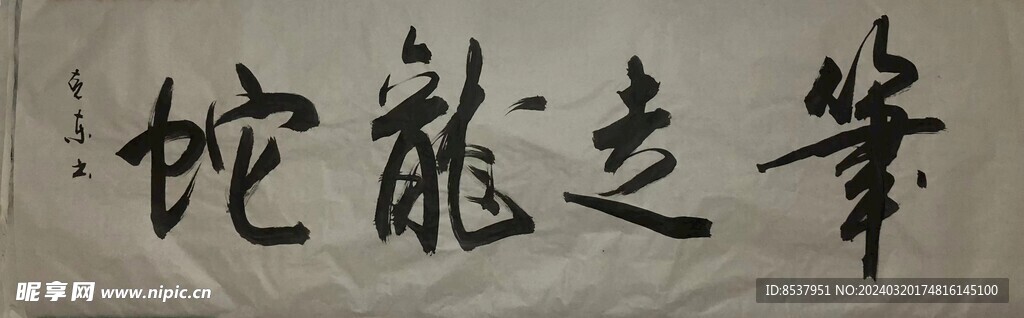 筆走龍蛇
东书
昵享网 www.nipic.cn
ID:8537951 NO:20240320174816145100